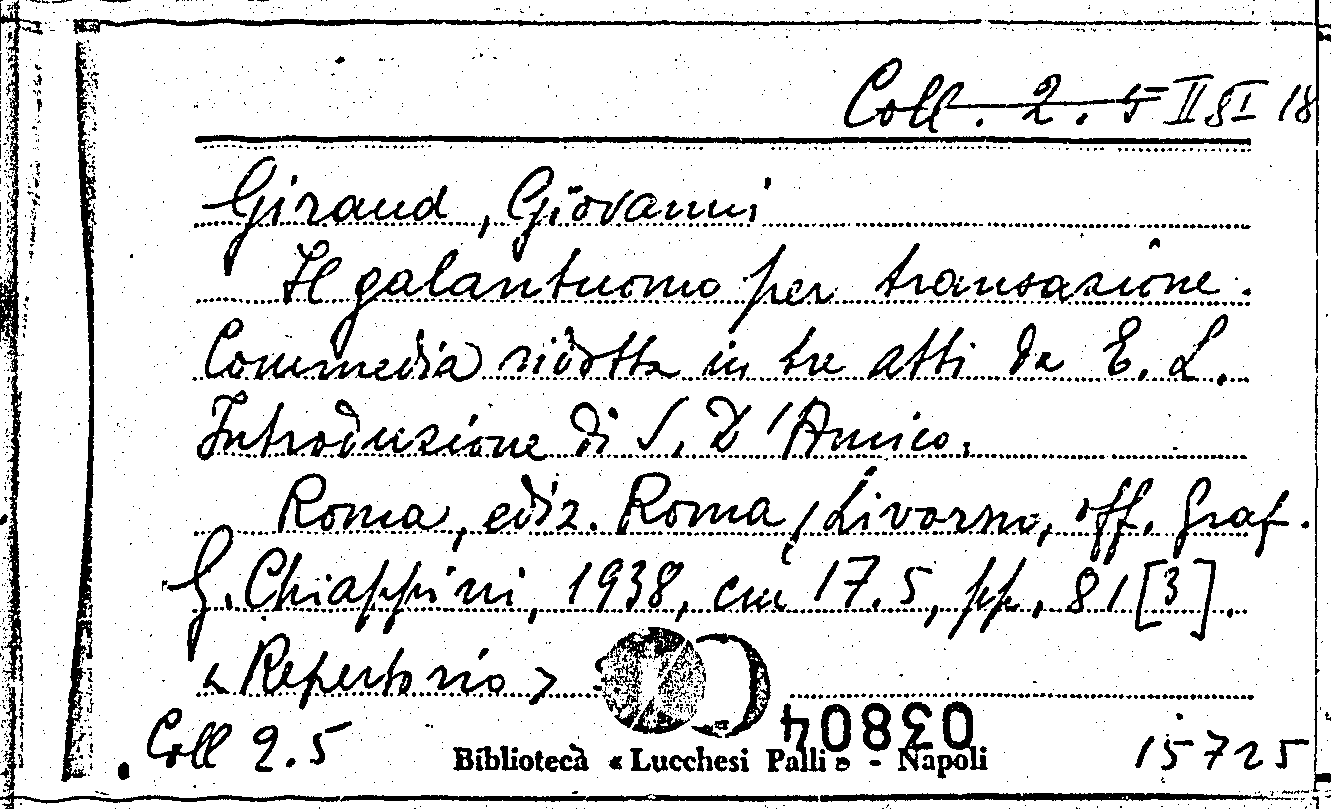 Coll. 2. 5 II 8 I 18
Giraud, Giovanni
Il galantuomo per transazione.
Commedia ridotta in tre atti da E. L.
Introduzione di S. D'Amico.
Roma, ediz. Roma (Livorno, off. graf.
G. Chiappini, 1938, cm 17.5, pp. 81 [3].
« Repertorio »
03804
Coll 2.5
Biblioteca « Lucchesi Palli » - Napoli
15725